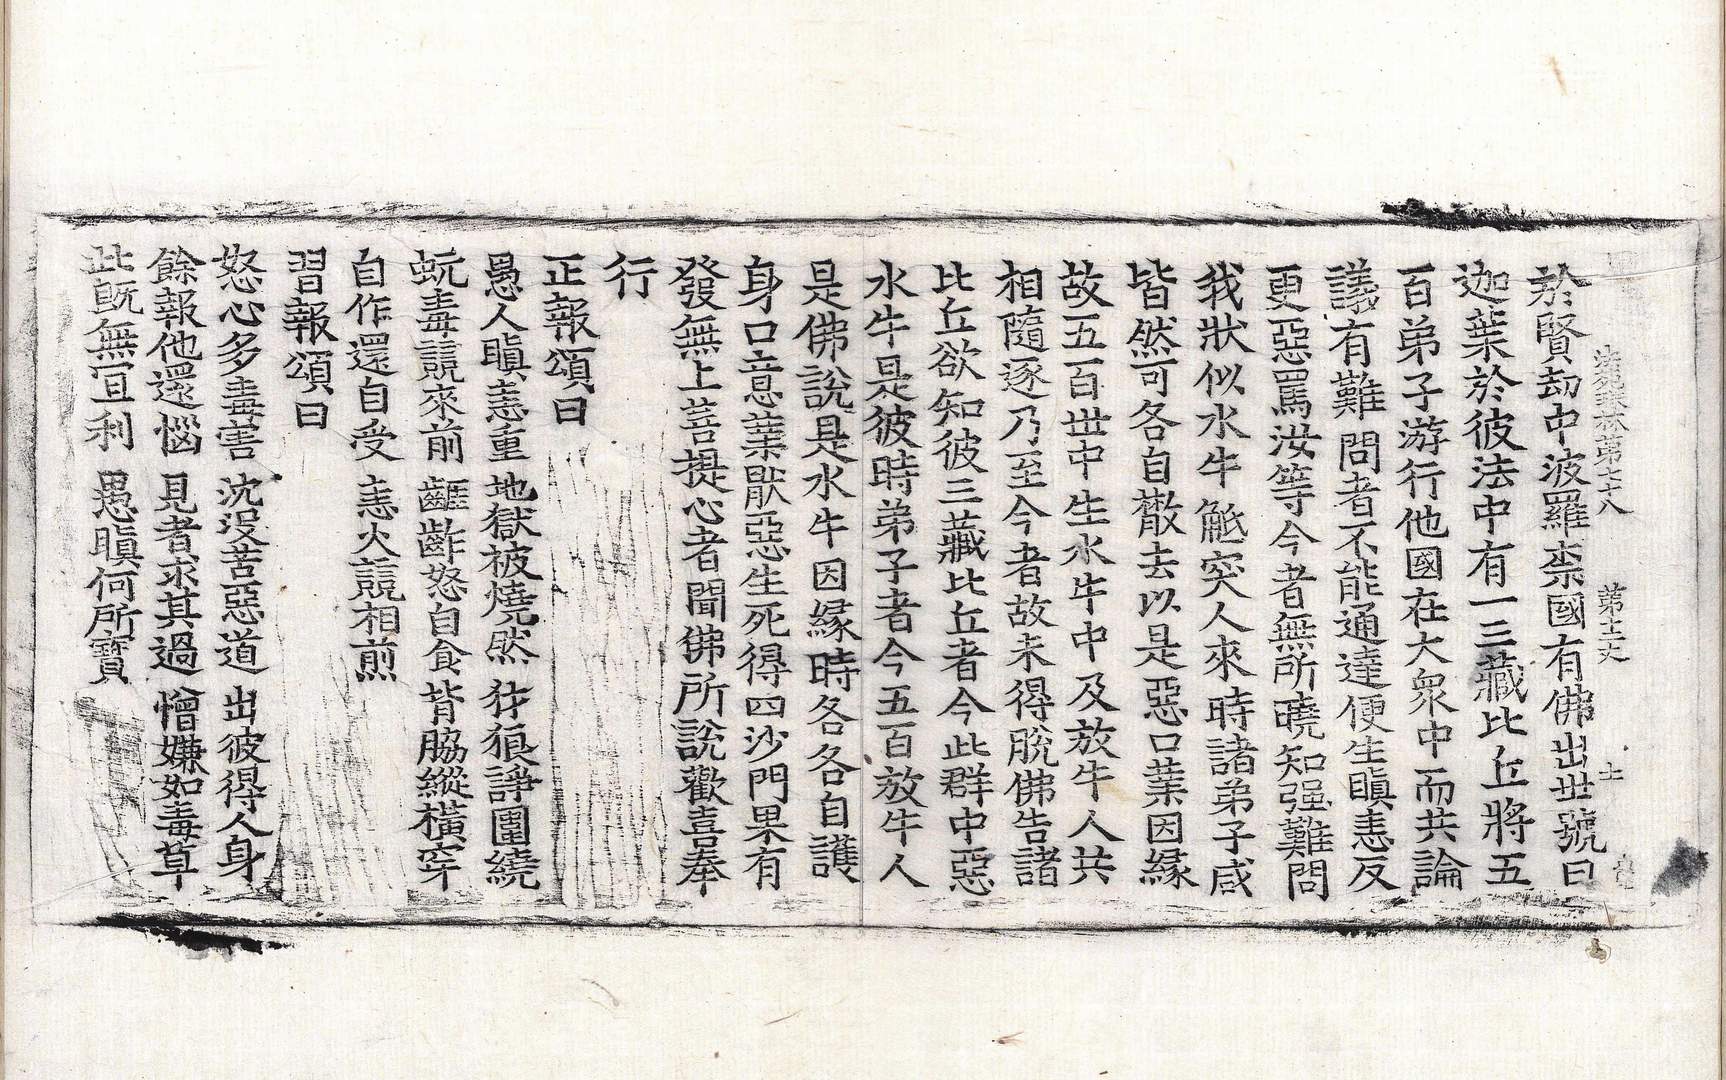 法苑珠林第七十八 第十一丈 士
於賢劫中波羅柰國有佛出世號曰
迦葉於彼法中有一三藏比丘將五
百弟子游行他國在大衆中而共論
議有難問者不能通達便生瞋恚反
更惡罵汝等今者無所曉知强難問
我狀似水牛觝突人來時諸弟子咸
皆然可各自散去以是惡口業因緣
故五百世中生水牛中及放牛人共
相隨逐乃至今者故未得脫佛告諸
比丘欲知彼三藏比丘者今此群中惡
水牛是彼時弟子者今五百放牛人
是佛說是水牛因緣時各各自護
身口意業厭惡生死得四沙門果有
發無上菩提心者聞佛所說歡喜奉
行
正報頌曰
愚人瞋恚重 地獄被燒然 犲狼諍圍繞
蚖毒競來前 齖齚怒自食 背脇縱橫穿
自作還自受 恚火競相煎
習報頌曰
怒心多毒害 沈沒苦惡道 出彼得人身
餘報他還惱 見者求其過 憎嫌如毒草
此旣無宜利 愚瞋何所寶